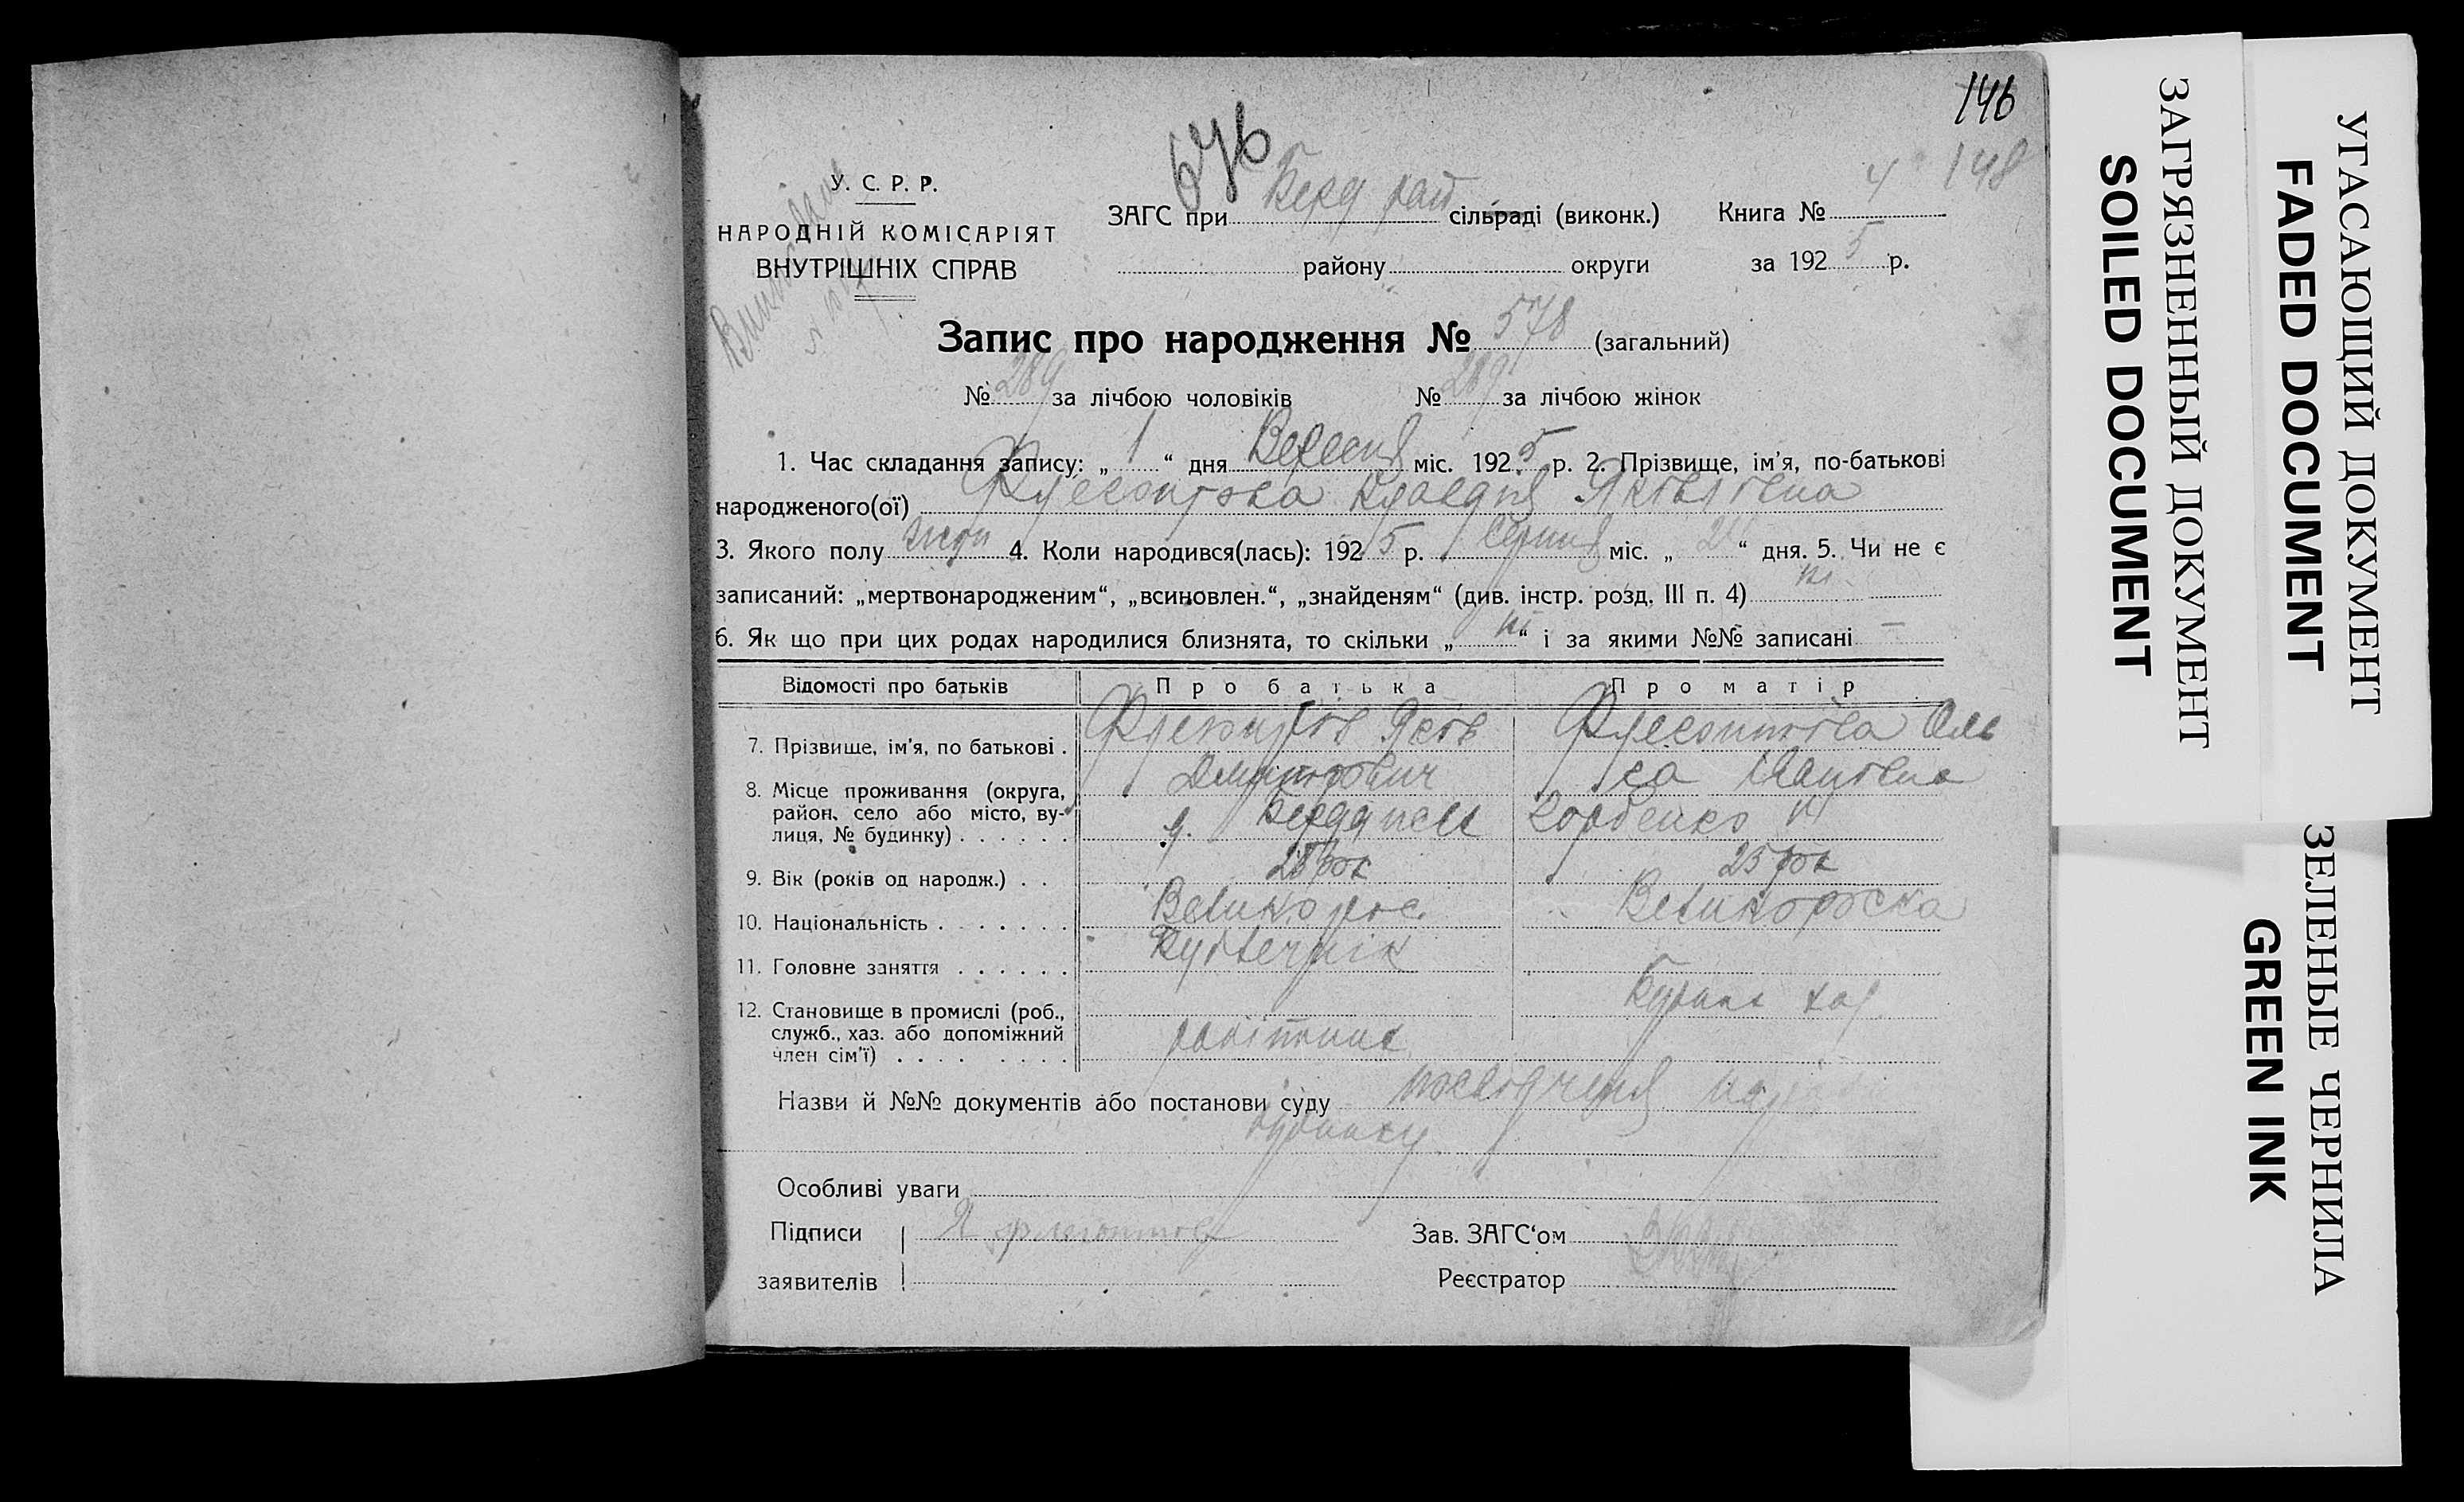 146
148
У. С. Р. Р.
НАРОДНІЙ КОМІСАРІЯТ
ВНУТРІШНІХ СПРАВ
ЗАГС при Берд рай сільраді (виконк.) Книга № 4
району округи за 1925 р.
Запис про народження № 578 (загальний)
№ 289 за лічбою чоловіків № 289 за лічбою жінок
1. Час складання запису: „1“ дня Вересня міс. 1925 р. 2. Прізвище, ім'я, по-батькові
народженого(ої) Флегонтова Клавдія Яківлівна
3. Якого полу жін 4. Коли народився(лась): 1925 р. Серпня міс. „ “ дня. 5. Чи не є
записаний: „мертвонародженим“, „всиновлен.“, „знайденям“ (див. інстр. розд. III п. 4) ні
6. Як що при цих родах народилися близнята, то скільки „ні“ і за якими №№ записані —
Відомості про батьків Про батька Про матір
7. Прізвище, ім'я, по батькові . Флегонтов Яків Флегонтова Оль
Дмитрович га Іванівна
8. Місце проживання (округа,
район, село або місто, ву-
лиця, № будинку) . . . . . .
9. Вік (років од народж.) . . 28 рок 25 рок
10. Національність . . . . . . . Великорос. Великороска
11. Головне заняття . . . . . .
12. Становище в промислі (роб.,
служб., хаз. або допоміжний
член сім'ї) . . . . . . . . . робітник
Назви й №№ документів або постанови суду посвідчення
будинку
Особливі уваги
Підписи Я Флегонтов Зав. ЗАГС'ом
заявителів Реєстратор
ЗАГРЯЗНЕННЫЙ ДОКУМЕНТ
SOILED DOCUMENT
УГАСАЮЩИЙ ДОКУМЕНТ
FADED DOCUMENT
ЗЕЛЕНЫЕ ЧЕРНИЛА
GREEN INK